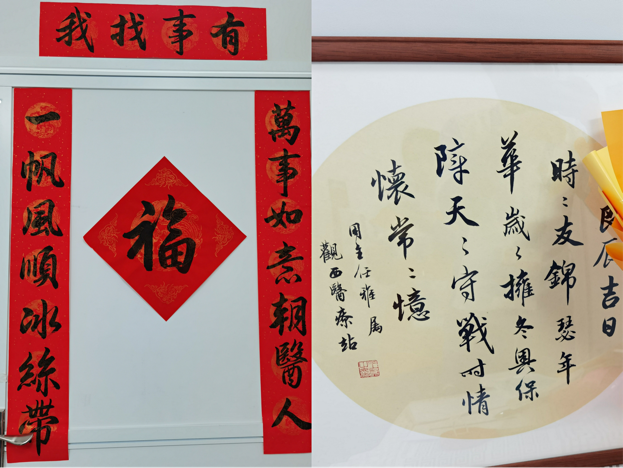 有事找我
萬事如意朝醫人
一帆風順冰絲帶
福
良辰吉日
時〻友錦瑟年
華歲〻擁冬奧保
障天〻守戰时情
懷常〻憶
周主任雅屬
觀西醫療站